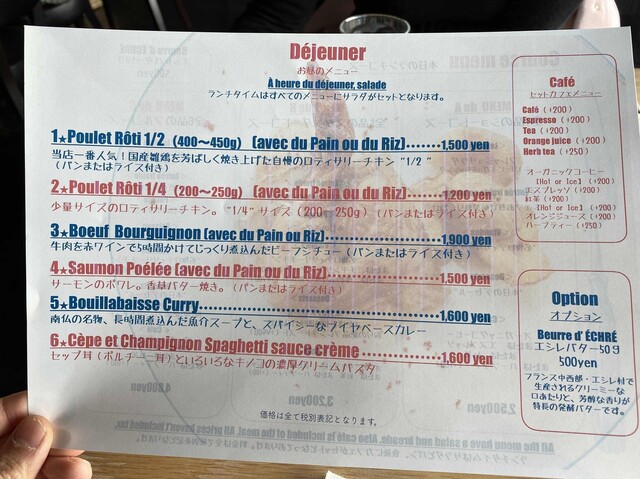 Déjeuner
お昼のメニュー
À heure du déjeuner, salade
ランチタイムはすべてのメニューにサラダがセットとなります。
1★Poulet Rôti 1/2 (400〜450g) (avec du Pain ou du Riz)・・・・・・・1,500 yen
当店一番人気！国産雛鶏を芳ばしく焼き上げた自慢のロティサリーチキン "1/2"
(パンまたはライス付き)
2★Poulet Rôti 1/4 (200〜250g) (avec du Pain ou du Riz)・・・・・・・1,200 yen
少量サイズのロティサリーチキン。"1/4"サイズ(200〜250g) (パンまたはライス付き)
3★Boeuf Bourguignon (avec du Pain ou Riz)・・・・・・・1,900 yen
牛肉を赤ワインで5時間かけてじっくり煮込んだビーフシチュー (パンまたはライス付き)
4★Saumon Poélée (avec du Pain ou du Riz)・・・・・・・1,500 yen
サーモンのポワレ。香草バター焼き。(パンまたはライス付き)
5★Bouillabaisse Curry・・・・・・・1,600 yen
南仏の名物、長時間煮込んだ魚介スープと、スパイシーなブイヤベースカレー
6★Cèpe et Champignon Spaghetti sauce crème・・・・・・・1,600 yen
セップ茸(ポルチーニ茸)といろいろなキノコの濃厚クリームパスタ
価格は全て税別表記となります。
Café
セットカフェメニュー
Café (+200)
Espresso (+200)
Tea (+200)
Orange juice (+200)
Herb tea (+250)
オーガニックコーヒー
[Hot or Ice] (+200)
エスプレッソ (+200)
紅茶 (+200)
[Hot or Ice] (+200)
オレンジジュース (+200)
ハーブティー (+250)
Option
オプション
Beurre d' ÉCHRÉ
エシレバター50g
500yen
フランス中西部・エシレ村で
生産されるクリーミーな
口あたりと、芳醇な香りが
特長の発酵バターです。